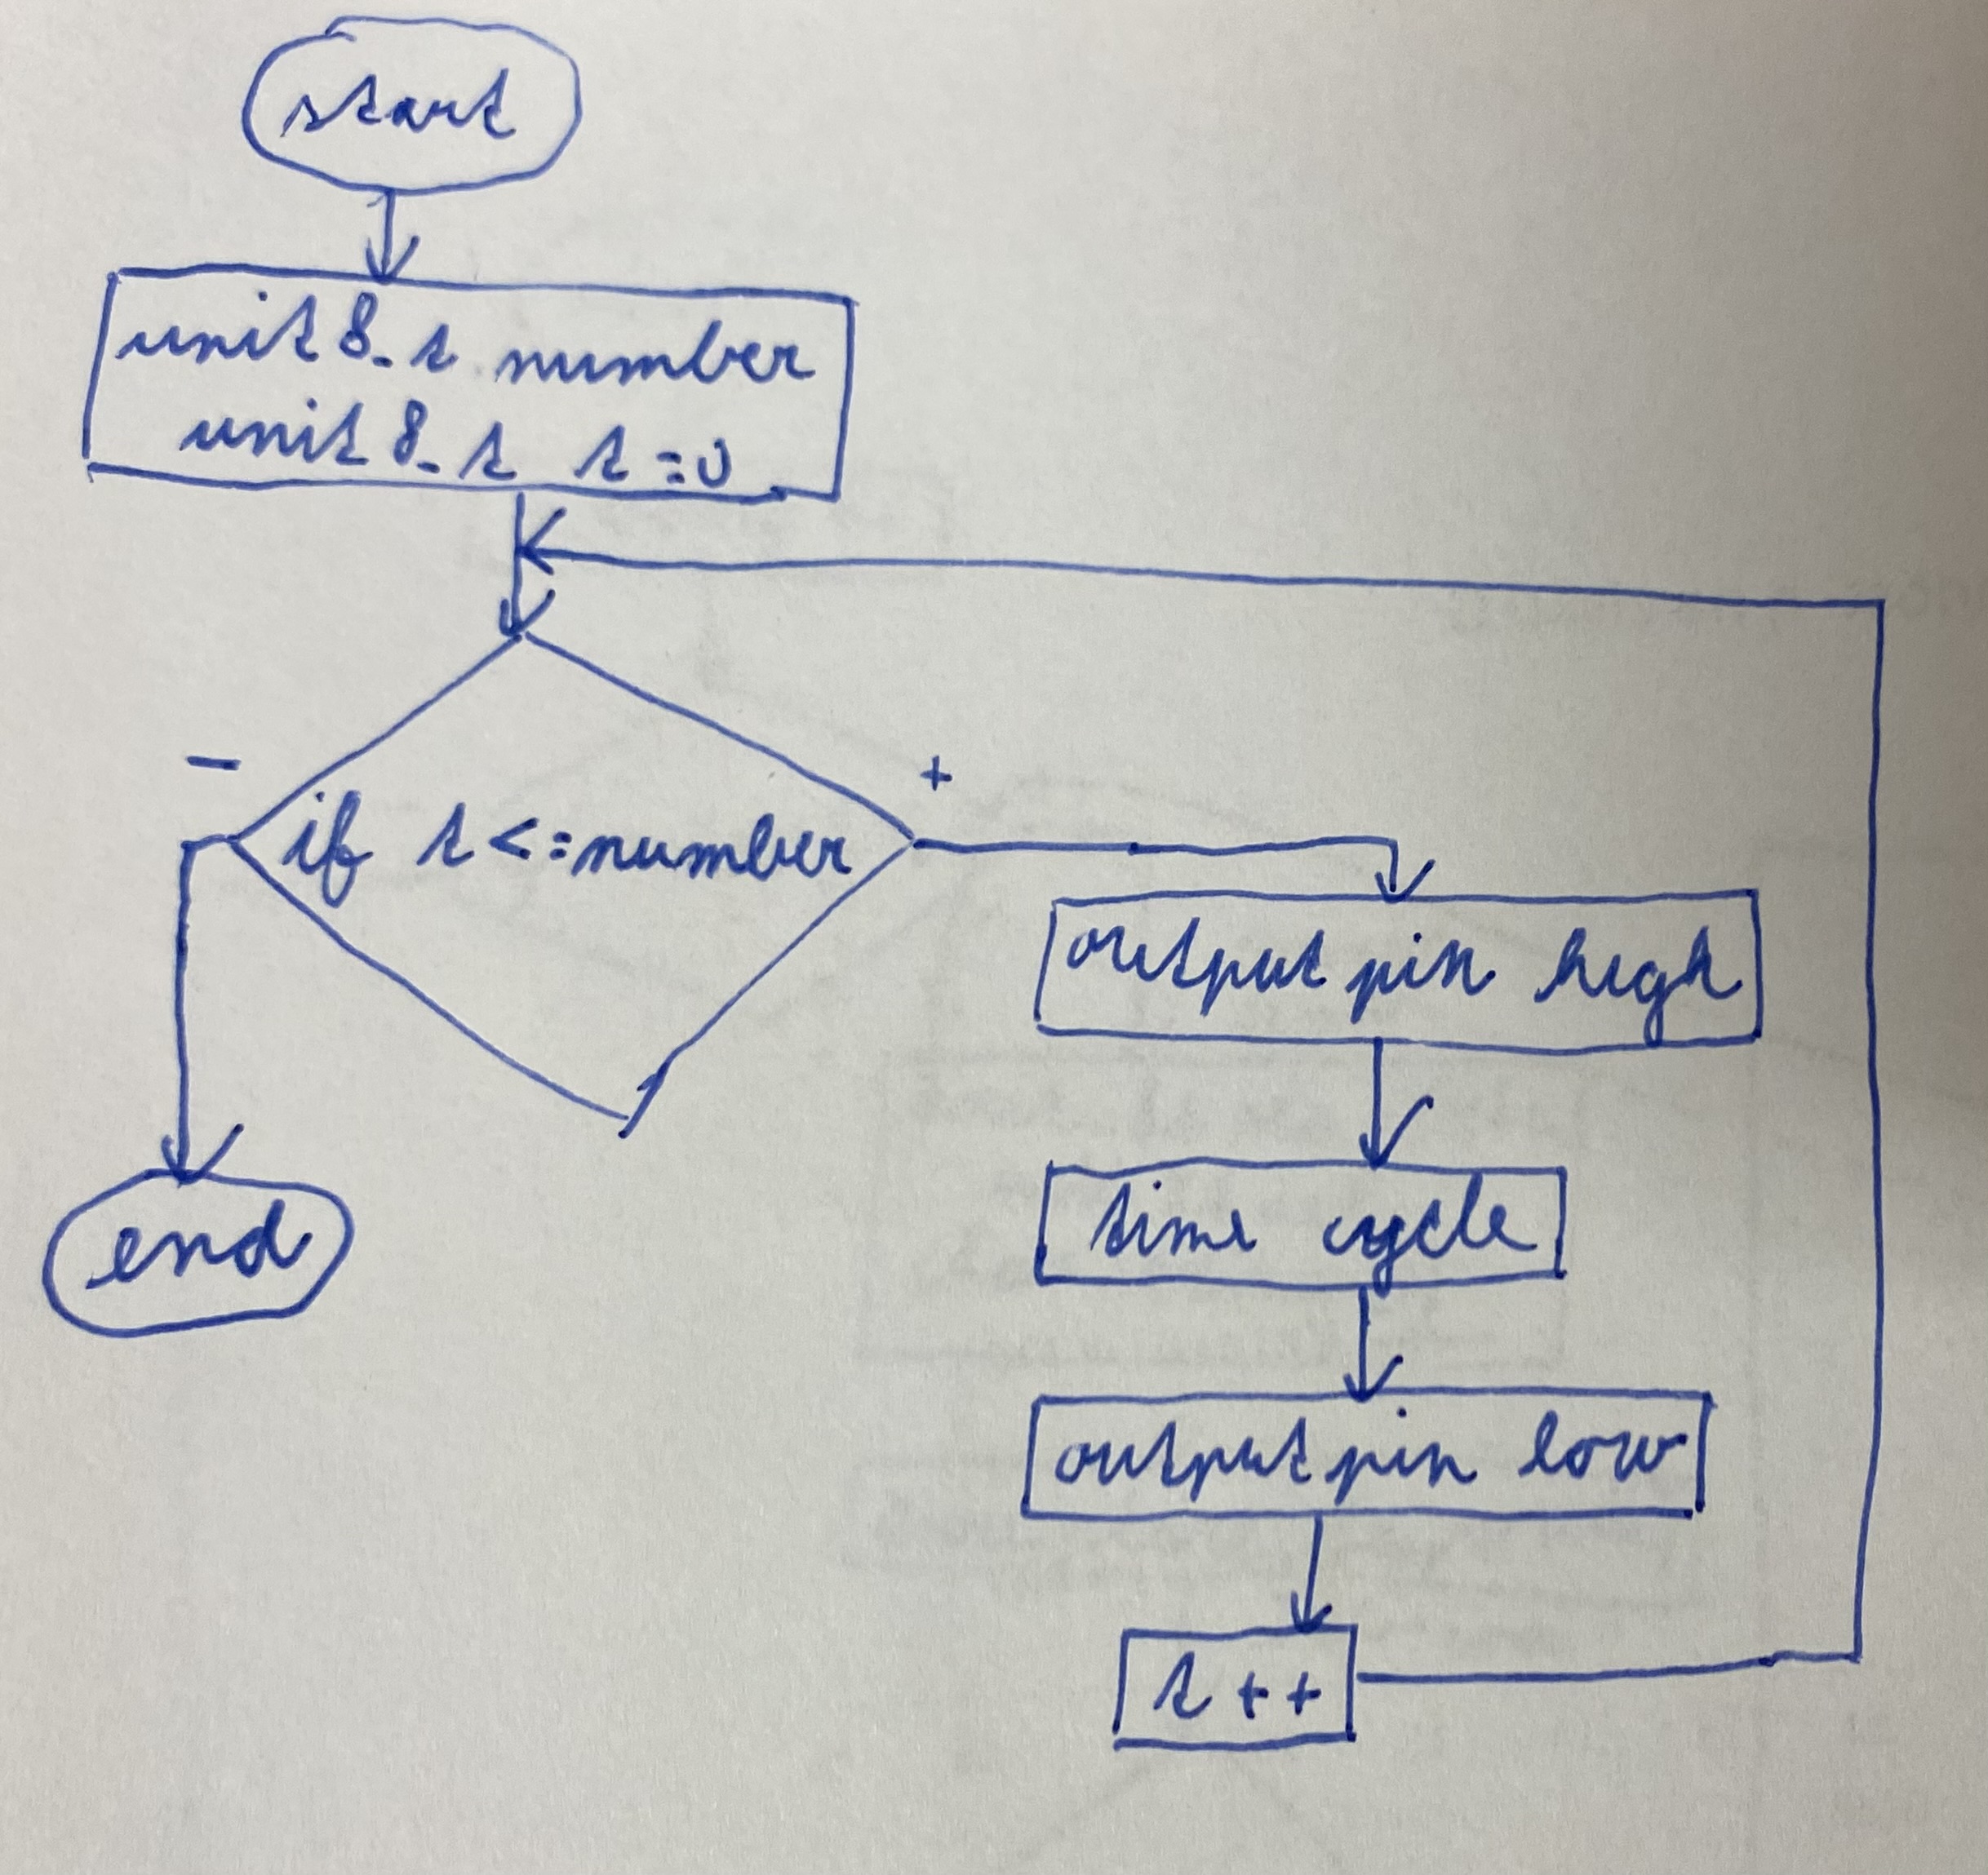 start
unit 8_t number
unit 8_t t=0
-
+
if t<=number
output pin high
time cycle
end
output pin low
t++